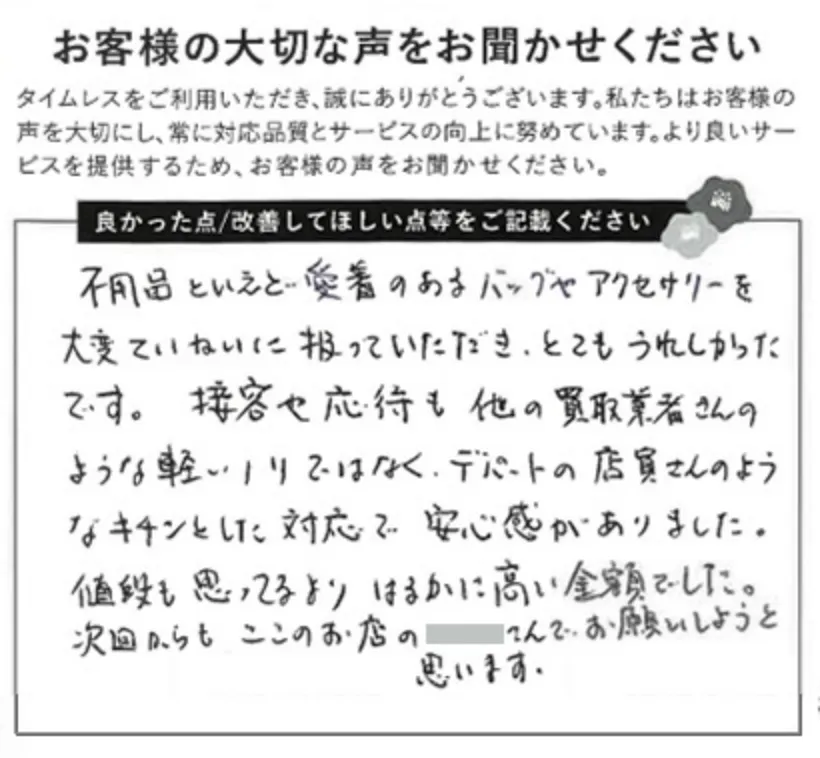 お客様の大切な声をお聞かせください
タイムレスをご利用いただき、誠にありがとうございます。私たちはお客様の
声を大切にし、常に対応品質とサービスの向上に努めています。より良いサー
ビスを提供するため、お客様の声をお聞かせください。
良かった点/改善してほしい点等をご記載ください
不用品といえど愛着のあるバッグやアクセサリーを
大変ていねいに扱っていただき、とてもうれしかった
です。 接客や応待も他の買取業者さんの
ような軽いノリではなく、デパートの店員さんのよう
なキチンとした対応で安心感がありました。
値段も思ってるよりはるかに高い金額でした。
次回からもここのお店の さんでお願いしようと
思います。